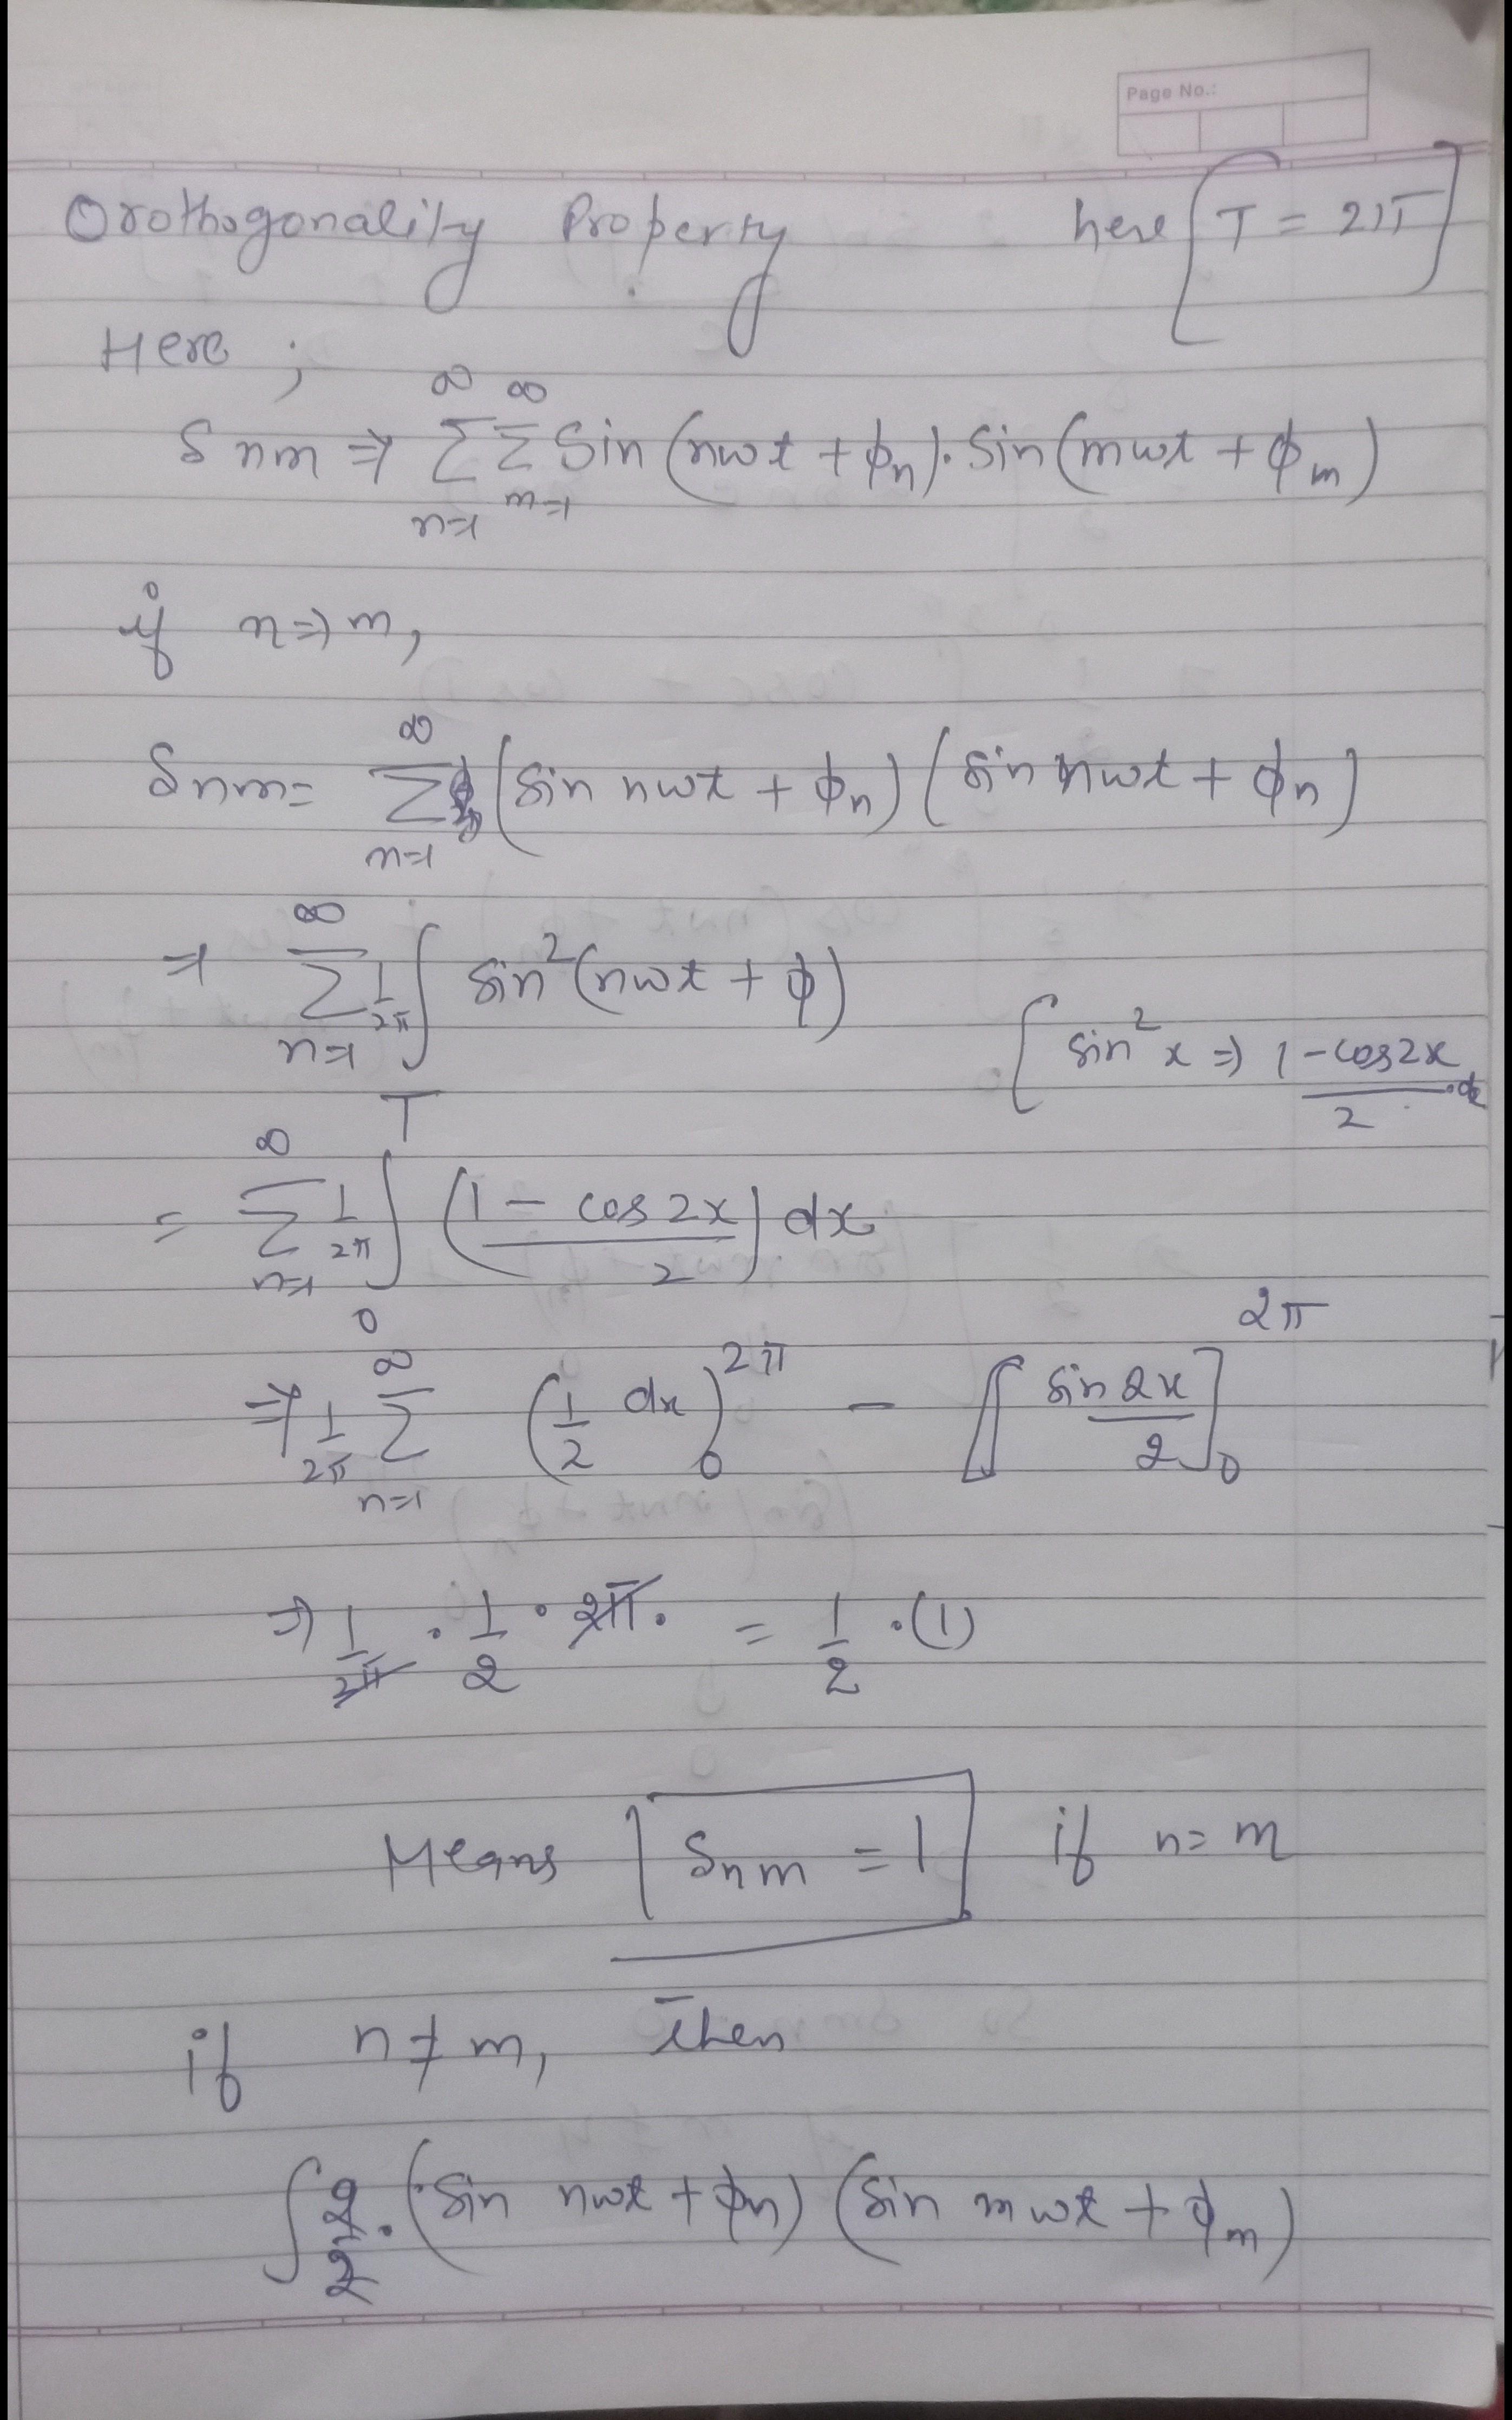 Page No.:
Orothogonality Property here [T = 2π]
Here ;
δnm ⇒ ∞Σn=1 ∞Σm=1 Sin (nwt + ϕn). Sin (mwt + ϕm)
if n ⇒ m,
δnm = ∞Σn=1 (Sin nwt + ϕn) (sin nwt + ϕn)
⇒ ∞Σn=1 1/2π ∫ sin²(nwt + ϕ)
[sin²x ⇒ 1-cos2x/2 .dx
= ∞Σn=1 1/2π T∫0 (1 - cos 2x/2) dx
⇒ 1/2π ∞Σn=1 (1/2 dx)2π0 - [sin 2x/2]2π0
⇒ 1/2π . 1/2 . 2π. = 1/2 .(1)
Means [δnm = 1] if n = m
if n ≠ m, then
∫ 2/2 . (Sin nwt + ϕn) (Sin mwt + ϕm)